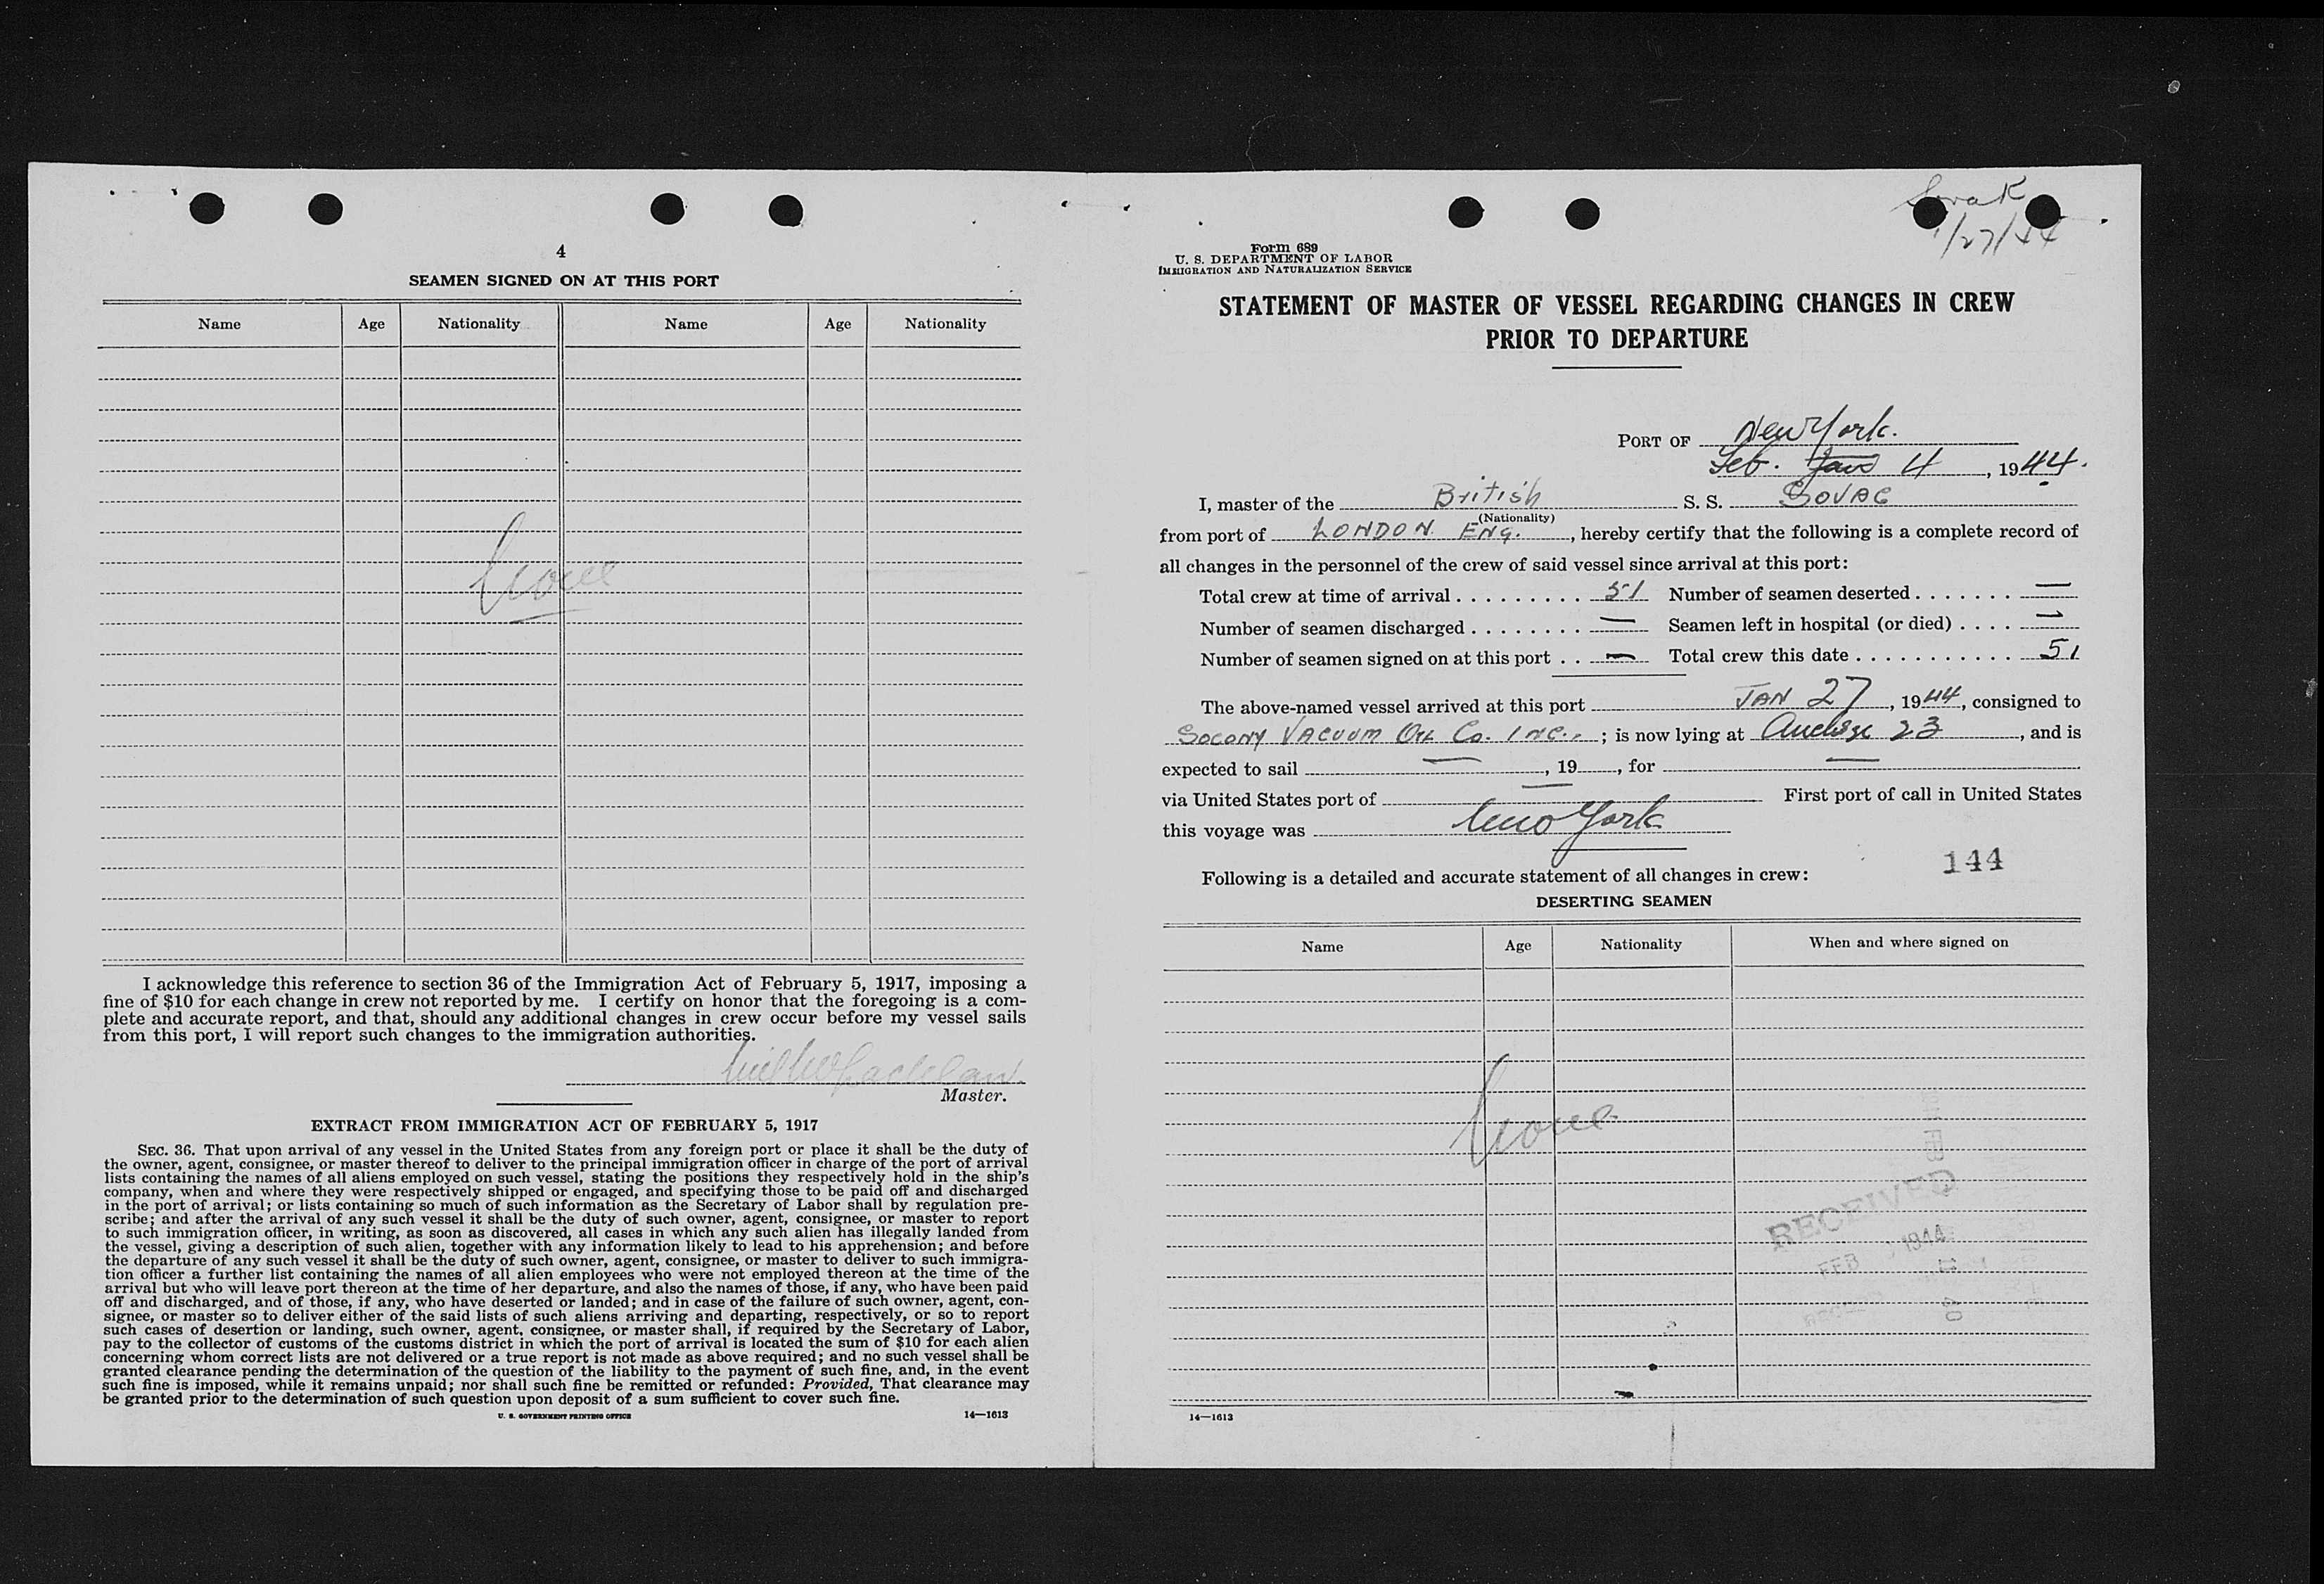 4
SEAMEN SIGNED ON AT THIS PORT
Name Age Nationality Name Age Nationality
None
I acknowledge this reference to section 36 of the Immigration Act of February 5, 1917, imposing a
fine of $10 for each change in crew not reported by me. I certify on honor that the foregoing is a com-
plete and accurate report, and that, should any additional changes in crew occur before my vessel sails
from this port, I will report such changes to the immigration authorities.
Master.
EXTRACT FROM IMMIGRATION ACT OF FEBRUARY 5, 1917
SEC. 36. That upon arrival of any vessel in the United States from any foreign port or place it shall be the duty of
the owner, agent, consignee, or master thereof to deliver to the principal immigration officer in charge of the port of arrival
lists containing the names of all aliens employed on such vessel, stating the positions they respectively hold in the ship's
company, when and where they were respectively shipped or engaged, and specifying those to be paid off and discharged
in the port of arrival; or lists containing so much of such information as the Secretary of Labor shall by regulation pre-
scribe; and after the arrival of any such vessel it shall be the duty of such owner, agent, consignee, or master to report
to such immigration officer, in writing, as soon as discovered, all cases in which any such alien has illegally landed from
the vessel, giving a description of such alien, together with any information likely to lead to his apprehension; and before
the departure of any such vessel it shall be the duty of such owner, agent, consignee, or master to deliver to such immigra-
tion officer a further list containing the names of all alien employees who were not employed thereon at the time of the
arrival but who will leave port thereon at the time of her departure, and also the names of those, if any, who have been paid
off and discharged, and of those, if any, who have deserted or landed; and in case of the failure of such owner, agent, con-
signee, or master so to deliver either of the said lists of such aliens arriving and departing, respectively, or so to report
such cases of desertion or landing, such owner, agent, consignee, or master shall, if required by the Secretary of Labor,
pay to the collector of customs of the customs district in which the port of arrival is located the sum of $10 for each alien
concerning whom correct lists are not delivered or a true report is not made as above required; and no such vessel shall be
granted clearance pending the determination of the question of the liability to the payment of such fine, and, in the event
such fine is imposed, while it remains unpaid; nor shall such fine be remitted or refunded: Provided, That clearance may
be granted prior to the determination of such question upon deposit of a sum sufficient to cover such fine.
U. S. GOVERNMENT PRINTING OFFICE 14—1613
1/27/44
Form 689
U. S. DEPARTMENT OF LABOR
IMMIGRATION AND NATURALIZATION SERVICE
STATEMENT OF MASTER OF VESSEL REGARDING CHANGES IN CREW
PRIOR TO DEPARTURE
PORT OF New York.
Feb. Jan 4, 1944.
I, master of the British S. S. SOVAC
(Nationality)
from port of LONDON. ENG., hereby certify that the following is a complete record of
all changes in the personnel of the crew of said vessel since arrival at this port:
Total crew at time of arrival . . . . . . . . . 51 Number of seamen deserted . . . . . . . —
Number of seamen discharged . . . . . . . . — Seamen left in hospital (or died) . . . . —
Number of seamen signed on at this port . . — Total crew this date . . . . . . . . . . . . 51
The above-named vessel arrived at this port JAN 27, 1944, consigned to
SOCONY VACUUM OIL Co. INC.; is now lying at Anchge 23, and is
expected to sail —, 19—, for —
via United States port of First port of call in United States
this voyage was New York
144
Following is a detailed and accurate statement of all changes in crew:
DESERTING SEAMEN
Name Age Nationality When and where signed on
None
RECEIVED
FEB 1944
14—1613